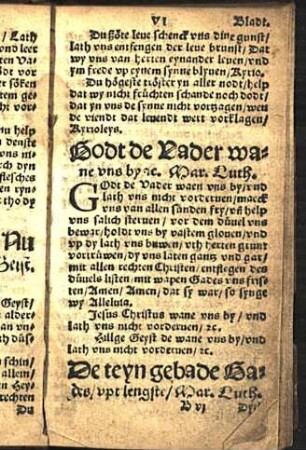 VI Bladt.
Du söte leue schenck vns dine gunst/
lath vns entfengen der leue brunst/ Dat
wy vns van herten eynander leuen/ vnd
ym frede vp eynem synne blyuen/ Kyrio.
Du högeste tröster yn aller nodt/ help
dat wy nicht früchten schande noch dodt/
dat yn vns de synne nicht vortzagen/ wen
de viendt dat leuendt wert vorklagen/
Kyrioleys.
Godt de Vader wa-
ne vns by ꝛc. Mar. Luth.
GOdt de Vader waen vns by/ vnd
lath vns nicht vorderuen/ maeck
vns van allen sunden fry/ vñ help
vns salich steruen/ vor dem düuel vns
bewar/ holdt vns by vastem glouen/ vnd
vp dy lath vns buwen/ vth herten grunt
vortrüwen/ dy vns laten gantz vnd gar/
mit allen rechten Christen/ entflegen des
düuels listen/ mit wapen Gades vns fri-
sten/ Amen/ Amen/ dat sy war/ so synge
wy Alleluia.
Jesus Christus wane vns by/ vnd
lath vns nicht vorderuen/ ꝛc.
Hillge Geyst de wane vns by/ vnd
lath vns nicht vorderuen/ ꝛc.
De teyn gebade Ga-
des/ vpt lengste/ Mar. Luth.
B vj Dyt